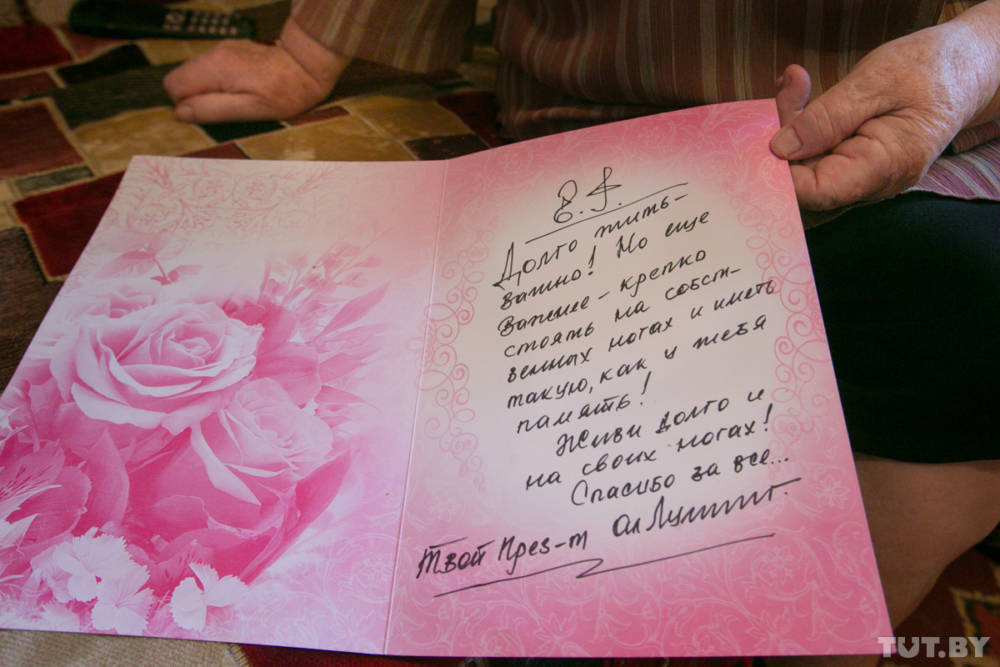 Е. Г.
Долго жить –
важно! Но еще
важнее – крепко
стоять на собст–
венных ногах и иметь
такую, как у тебя
память!
Живи долго и
на своих ногах!
Спасибо за все...
Твой През-т
TUT.BY